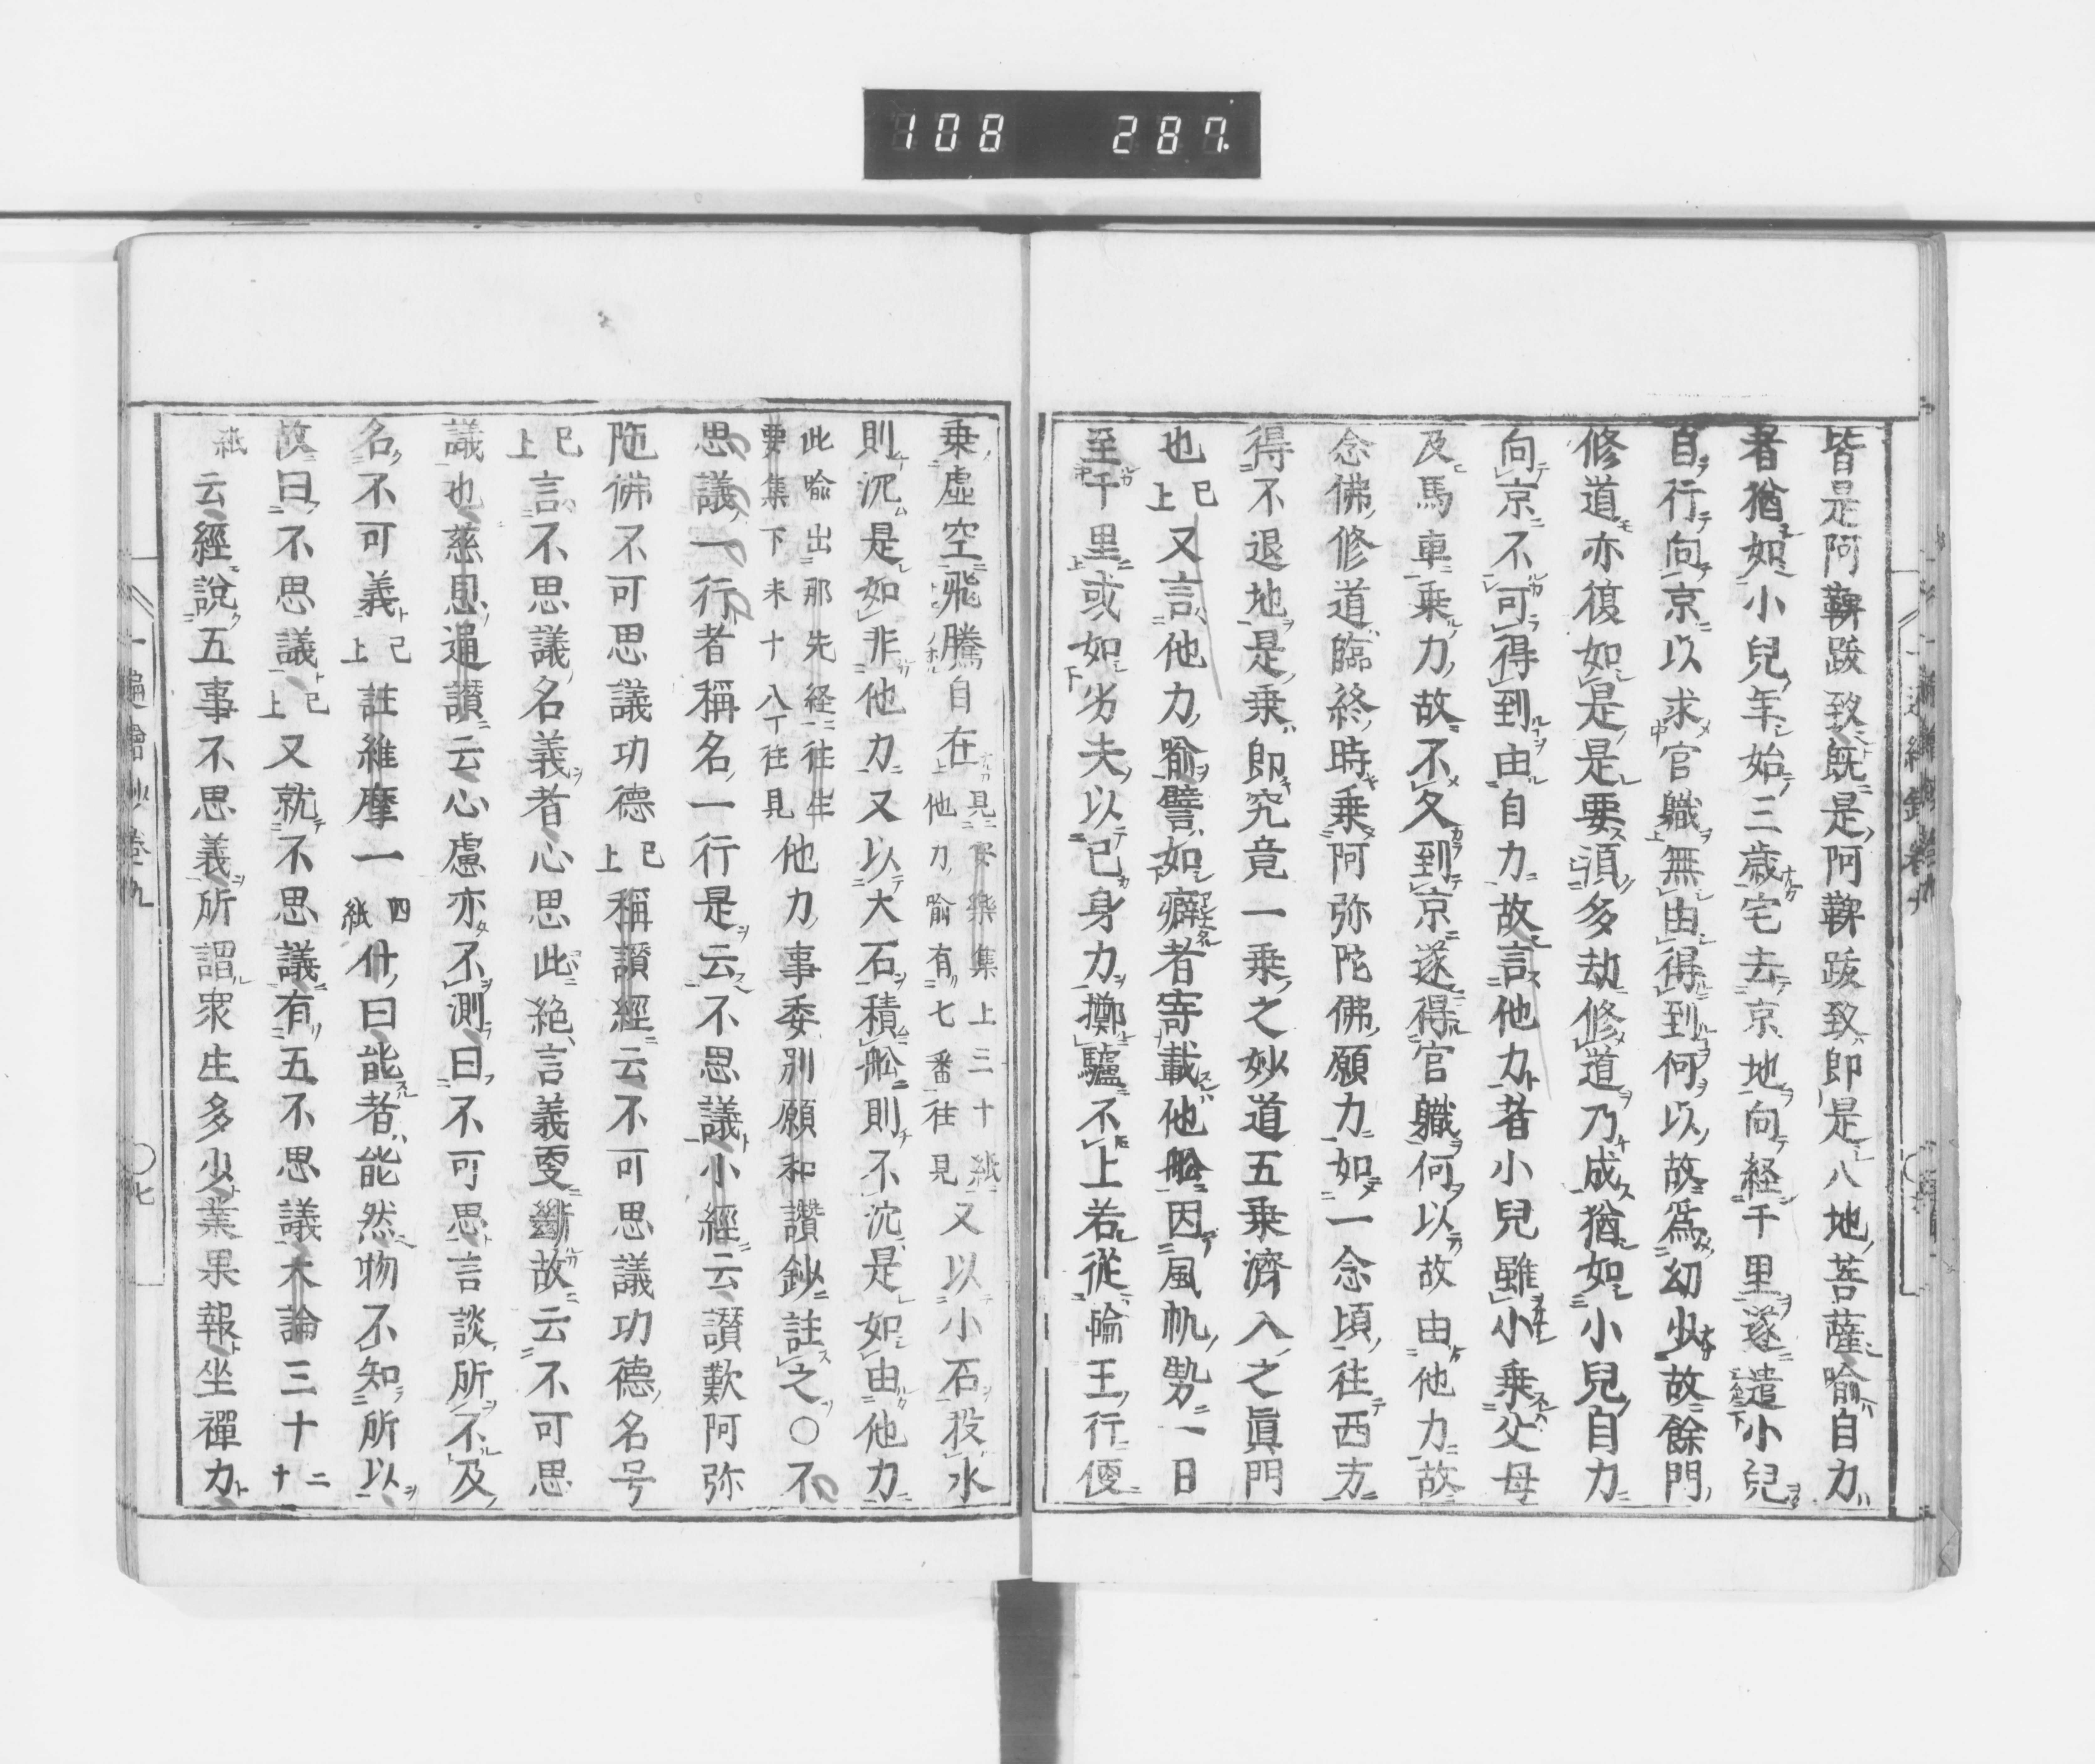 108 287
皆是阿鞞跋致既是阿鞞跋致即是八地菩薩喻自力
者猶如小兒年始三歲宅去京地向経千里遂遣小兒
自行向京以求官職無由得到何以故爲幼少故餘門
修道亦復如是是要須多劫修道乃成猶如小兒自力
向京不可得到由自力故言他力者小兒雖小乗父母
及馬車乗力故不久到京遂得官職何以故由他力故
念佛修道臨終時乗阿弥陀佛願力如一念頃往西方
得不退地是乗即究竟一乗之妙道五乗濟入之眞門
也已上又言他力喻譬如癖者寄載他舩因風帆勢一日
至千里或如劣夫以己身力擲驢不上若從輪王行便
乗虚空飛騰自在見安樂集上三十紙上他力喻有七番往見又以小石投水
則沉是如非他力又以大石積舩則不沈是如由他力
此喻出那先経往生要集下末十八丁往見他力事委別願和讃鈔註之○不
思議一行者稱名一行是云不思議小經云讃歎阿弥
陁佛不可思議功德已上稱讃經云不可思議功德名号
已上言不思議名義者心思此絶言義更斷故云不可思
議也慈恩通讃云心慮亦不測曰不可思言談所不及
名不可義已上註維摩一四紙什曰能者能然物不知所以
故曰不思議已上又就不思議有五不思議大論三十二十
紙云經說五事不思義所謂衆生多少業果報坐禪力
一遍繪抄卷九
○七